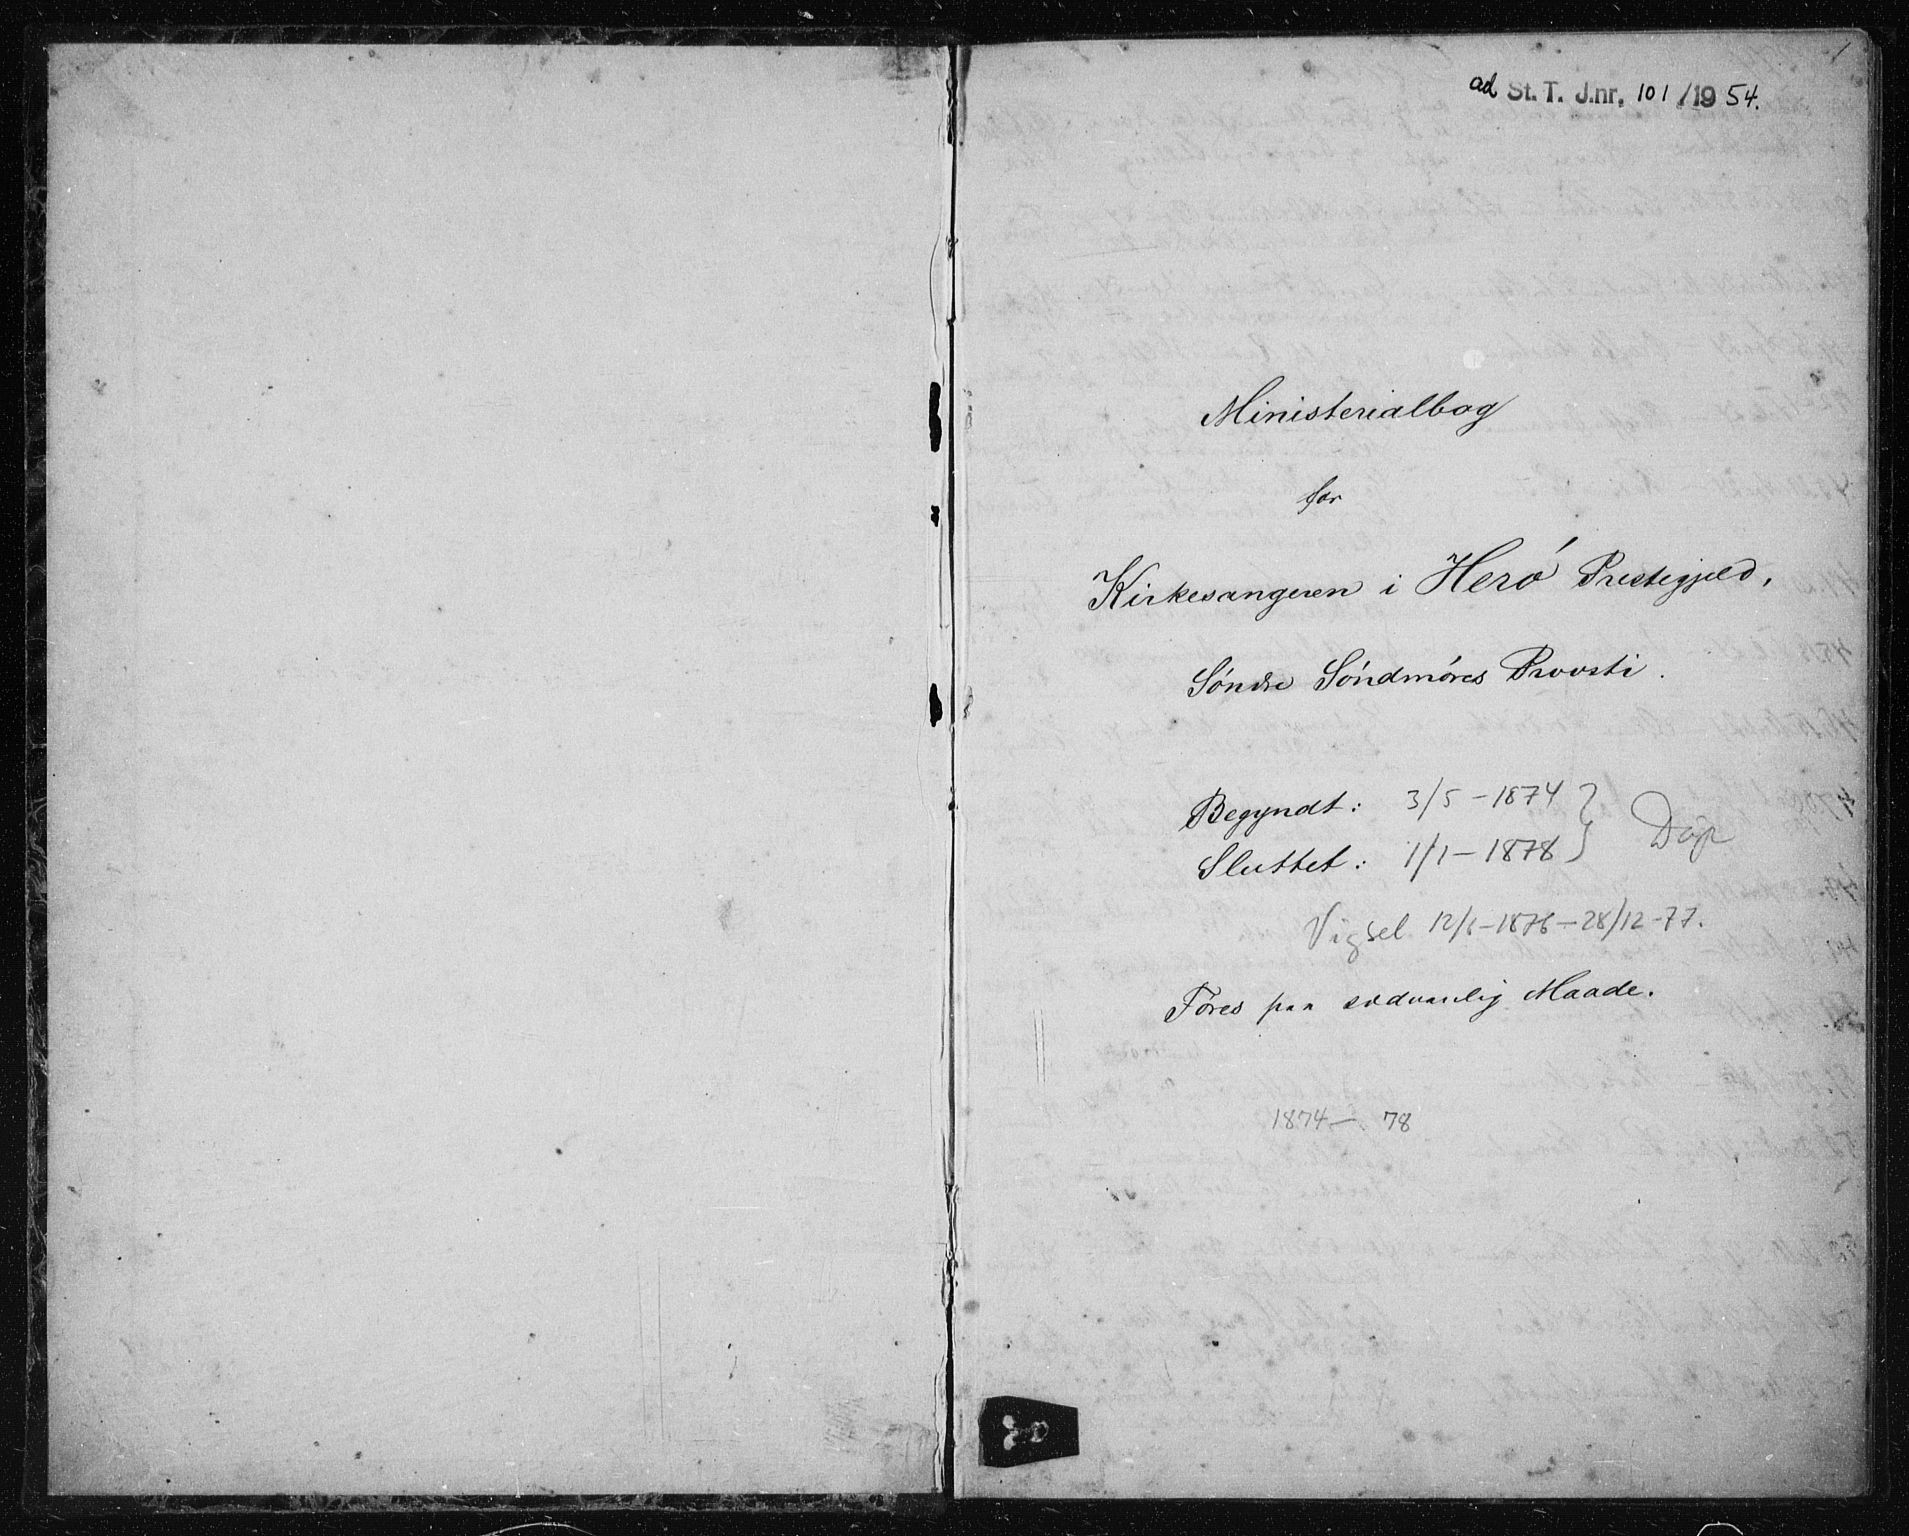 1
ad St. T. J.nr. 101/1954.
Ministerialbog
for
Kirkesangeren i Herö Prestegjeld,
Søndre Søndmøres Provsti.
Begyndt: 3/5 - 1874 } Dåp
Sluttet: 1/1 - 1878
Vigsel 12/6 - 1876 - 28/12 - 77.
Föres paa sedvanlig Maade.
1874 - 78